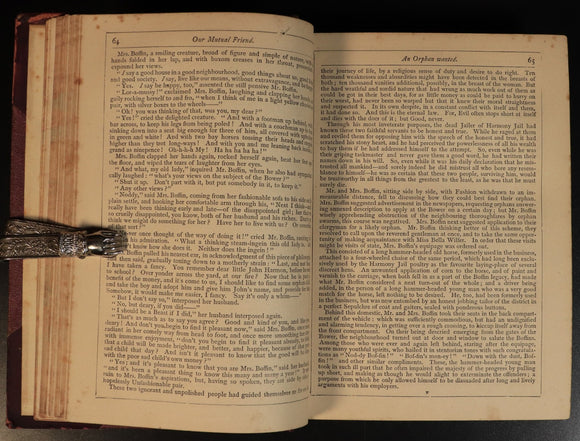 64
Our Mutual Friend.
Mrs. Boffin, a smiling creature, broad of figure and simple of nature, with her
hands folded in her lap, and with buxom creases in her throat, proceeded to
expound her views.
"I say a good house in a good neighbourhood, good things about us, good living,
and good society. I say, live like our means, without extravagance, and be happy."
"Yes. I say be happy, too," assented the still pensive Mr. Boffin.
"Lor-a-mussy!" exclaimed Mrs. Boffin, laughing and clapping her hands, and
gaily rocking herself to and fro, "when I think of me in a light yellow chariot and
pair, with silver boxes to the wheels——"
"Oh! you was thinking of that, was you, my dear?"
"Yes!" cried the delighted creature. "And with a footman up behind, with a
bar across, to keep his legs from being poled! And with a coachman up in front,
sinking down into a seat big enough for three of him, all covered with upholstery
in green and white! And with two bay horses tossing their heads and stepping
higher than they trot long-ways! And with you and me leaning back inside, as
grand as ninepence! Oh-h-h-h My! Ha ha ha ha ha!"
Mrs. Boffin clapped her hands again, rocked herself again, beat her feet upon
the floor, and wiped the tears of laughter from her eyes.
"And what, my old lady," inquired Mr. Boffin, when he also had sympathetically
laughed: "what's your views on the subject of the Bower?"
"Shut it up. Don't part with it, but put somebody in it, to keep it."
"Any other views?"
"Noddy," said Mrs. Boffin, coming from her fashionable sofa to his side on the
plain settle, and hooking her comfortable arm through his, "Next I think—and I
really have been thinking early and late—of the disappointed girl; her that was
so cruelly disappointed, you know, both of her husband and his riches. Don't you
think we might do something for her? Have her to live with us? Or something of
that sort?"
"Ne-ver once thought of the way of doing it!" cried Mr. Boffin, smiting the table
in his admiration. "What a thinking steam-ingein this old lady is. And she
don't know how she does it. Neither does the ingein!"
Mrs. Boffin pulled his nearest ear, in acknowledgment of this piece of philosophy,
and then said, gradually toning down to a motherly strain: "Last, and not least,
I have taken a fancy. You remember dear little John Harmon, before he went
to school? Over yonder across the yard, at our fire? Now that he is past all
benefit of the money, and it's come to us, I should like to find some orphan child,
and take the boy and adopt him and give him John's name, and provide for him.
Somehow, it would make me easier, I fancy. Say it's only a whim——"
"But I don't say so," interposed her husband.
"No, but deary, if you did——"
"I should be a Beast if I did," her husband interposed again.
"That's as much as to say you agree? Good and kind of you, and like you,
deary! And don't you begin to find it pleasant now," said Mrs. Boffin, once more
radiant in her comely way from head to foot, and once more smoothing her dress
with immense enjoyment, "don't you begin to find it pleasant already, to think
that a child will be made brighter, and better, and happier, because of that poor
sad child that day? And isn't it pleasant to know that the good will be done
with the poor sad child's own money?"
"Yes; and it's pleasant to know that you are Mrs. Boffin," said her husband,
"and it's been a pleasant thing to know this many and many a year!" It was
ruin to Mrs. Boffin's aspirations, but, having so spoken, they sat side by side, a
hopelessly Unfashionable pair.
These two ignorant and unpolished people had guided themselves so far on in
An Orphan wanted.
65
their journey of life, by a religious sense of duty and desire to do right. Ten
thousand weaknesses and absurdities might have been detected in the breasts of
both; ten thousand vanities additional, possibly, in the breast of the woman. But
the hard wrathful and sordid nature that had wrung as much work out of them as
could be got in their best days, for as little money as could be paid to hurry on
their worst, had never been so warped but that it knew their moral straightness
and respected it. In its own despite, in a constant conflict with itself and them, it
had done so. And this is the eternal law. For, Evil often stops short at itself
and dies with the doer of it; but Good, never.
Through his most inveterate purposes, the dead Jailer of Harmony Jail had
known these two faithful servants to be honest and true. While he raged at them
and reviled them for opposing him with the speech of the honest and true, it had
scratched his stony heart, and he had perceived the powerlessness of all his wealth
to buy them if he had addressed himself to the attempt. So, even while he was
their griping taskmaster and never gave them a good word, he had written their
names down in his will. So, even while it was his daily declaration that he mis-
trusted all mankind—and sorely indeed he did mistrust all who bore any re-
semblance to himself—he was as certain that these two people, surviving him, would
be trustworthy in all things from the greatest to the least, as he was that he must
surely die.
Mr. and Mrs. Boffin, sitting side by side, with Fashion withdrawn to an im-
measurable distance, fell to discussing how they could best find their orphan.
Mrs. Boffin suggested advertisement in the newspapers, requesting orphans answer-
ing annexed description to apply at the Bower on a certain day; but Mr. Boffin
wisely apprehending obstruction of the neighbouring thoroughfares by orphan
swarms, this course was negatived. Mrs. Boffin next suggested application to their
clergyman for a likely orphan. Mr. Boffin thinking better of this scheme, they
resolved to call upon the reverend gentleman at once, and to take the same oppor-
tunity of making acquaintance with Miss Bella Wilfer. In order that these visits
might be visits of state, Mrs. Boffin's equipage was ordered out.
This consisted of a long hammer-headed old horse, formerly used in the business,
attached to a four-wheeled chaise of the same period, which had long been exclu-
sively used by the Harmony Jail poultry as the favourite laying-place of several
discreet hens. An unwonted application of corn to the horse, and of paint and
varnish to the carriage, when both fell in as a part of the Boffin legacy, had made
what Mr. Boffin considered a neat turn-out of the whole; and a driver being
added, in the person of a long hammer-headed young man who was a very good
match for the horse, left nothing to be desired. He, too, had been formerly used
in the business, but was now entombed by an honest jobbing tailor of the district in
a perfect Sepulchre of coat and gaiters, sealed with ponderous buttons.
Behind this domestic, Mr. and Mrs. Boffin took their seats in the back compart-
ment of the vehicle: which was sufficiently commodious, but had an undignified
and alarming tendency, in getting over a rough crossing, to hiccup itself away from
the front compartment. On their being descried emerging from the gates of the
Bower, the neighbourhood turned out at door and window to salute the Boffins.
Among those who were ever and again left behind, staring after the equipage,
were many youthful spirits, who hailed it in stentorian tones with such congratula-
tions as "Nod-dy Bof-fin!" "Bof-fin's mon-ey!" "Down with the dust, Bof-
fin!" and other similar compliments. These, the hammer-headed young man
took in such ill part that he often impaired the majesty of the progress by pulling
up short, and making as though he would alight to exterminate the offenders; a
purpose from which he only allowed himself to be dissuaded after long and lively
arguments with his employers.
F